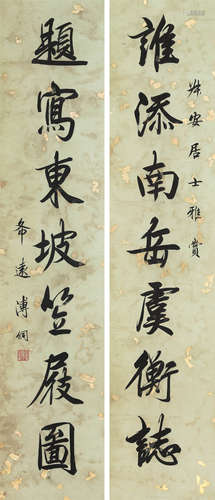 誰添南岳虞衡誌
叔安居士雅賞
題寫東坡笠屐圖
希遠溥侗